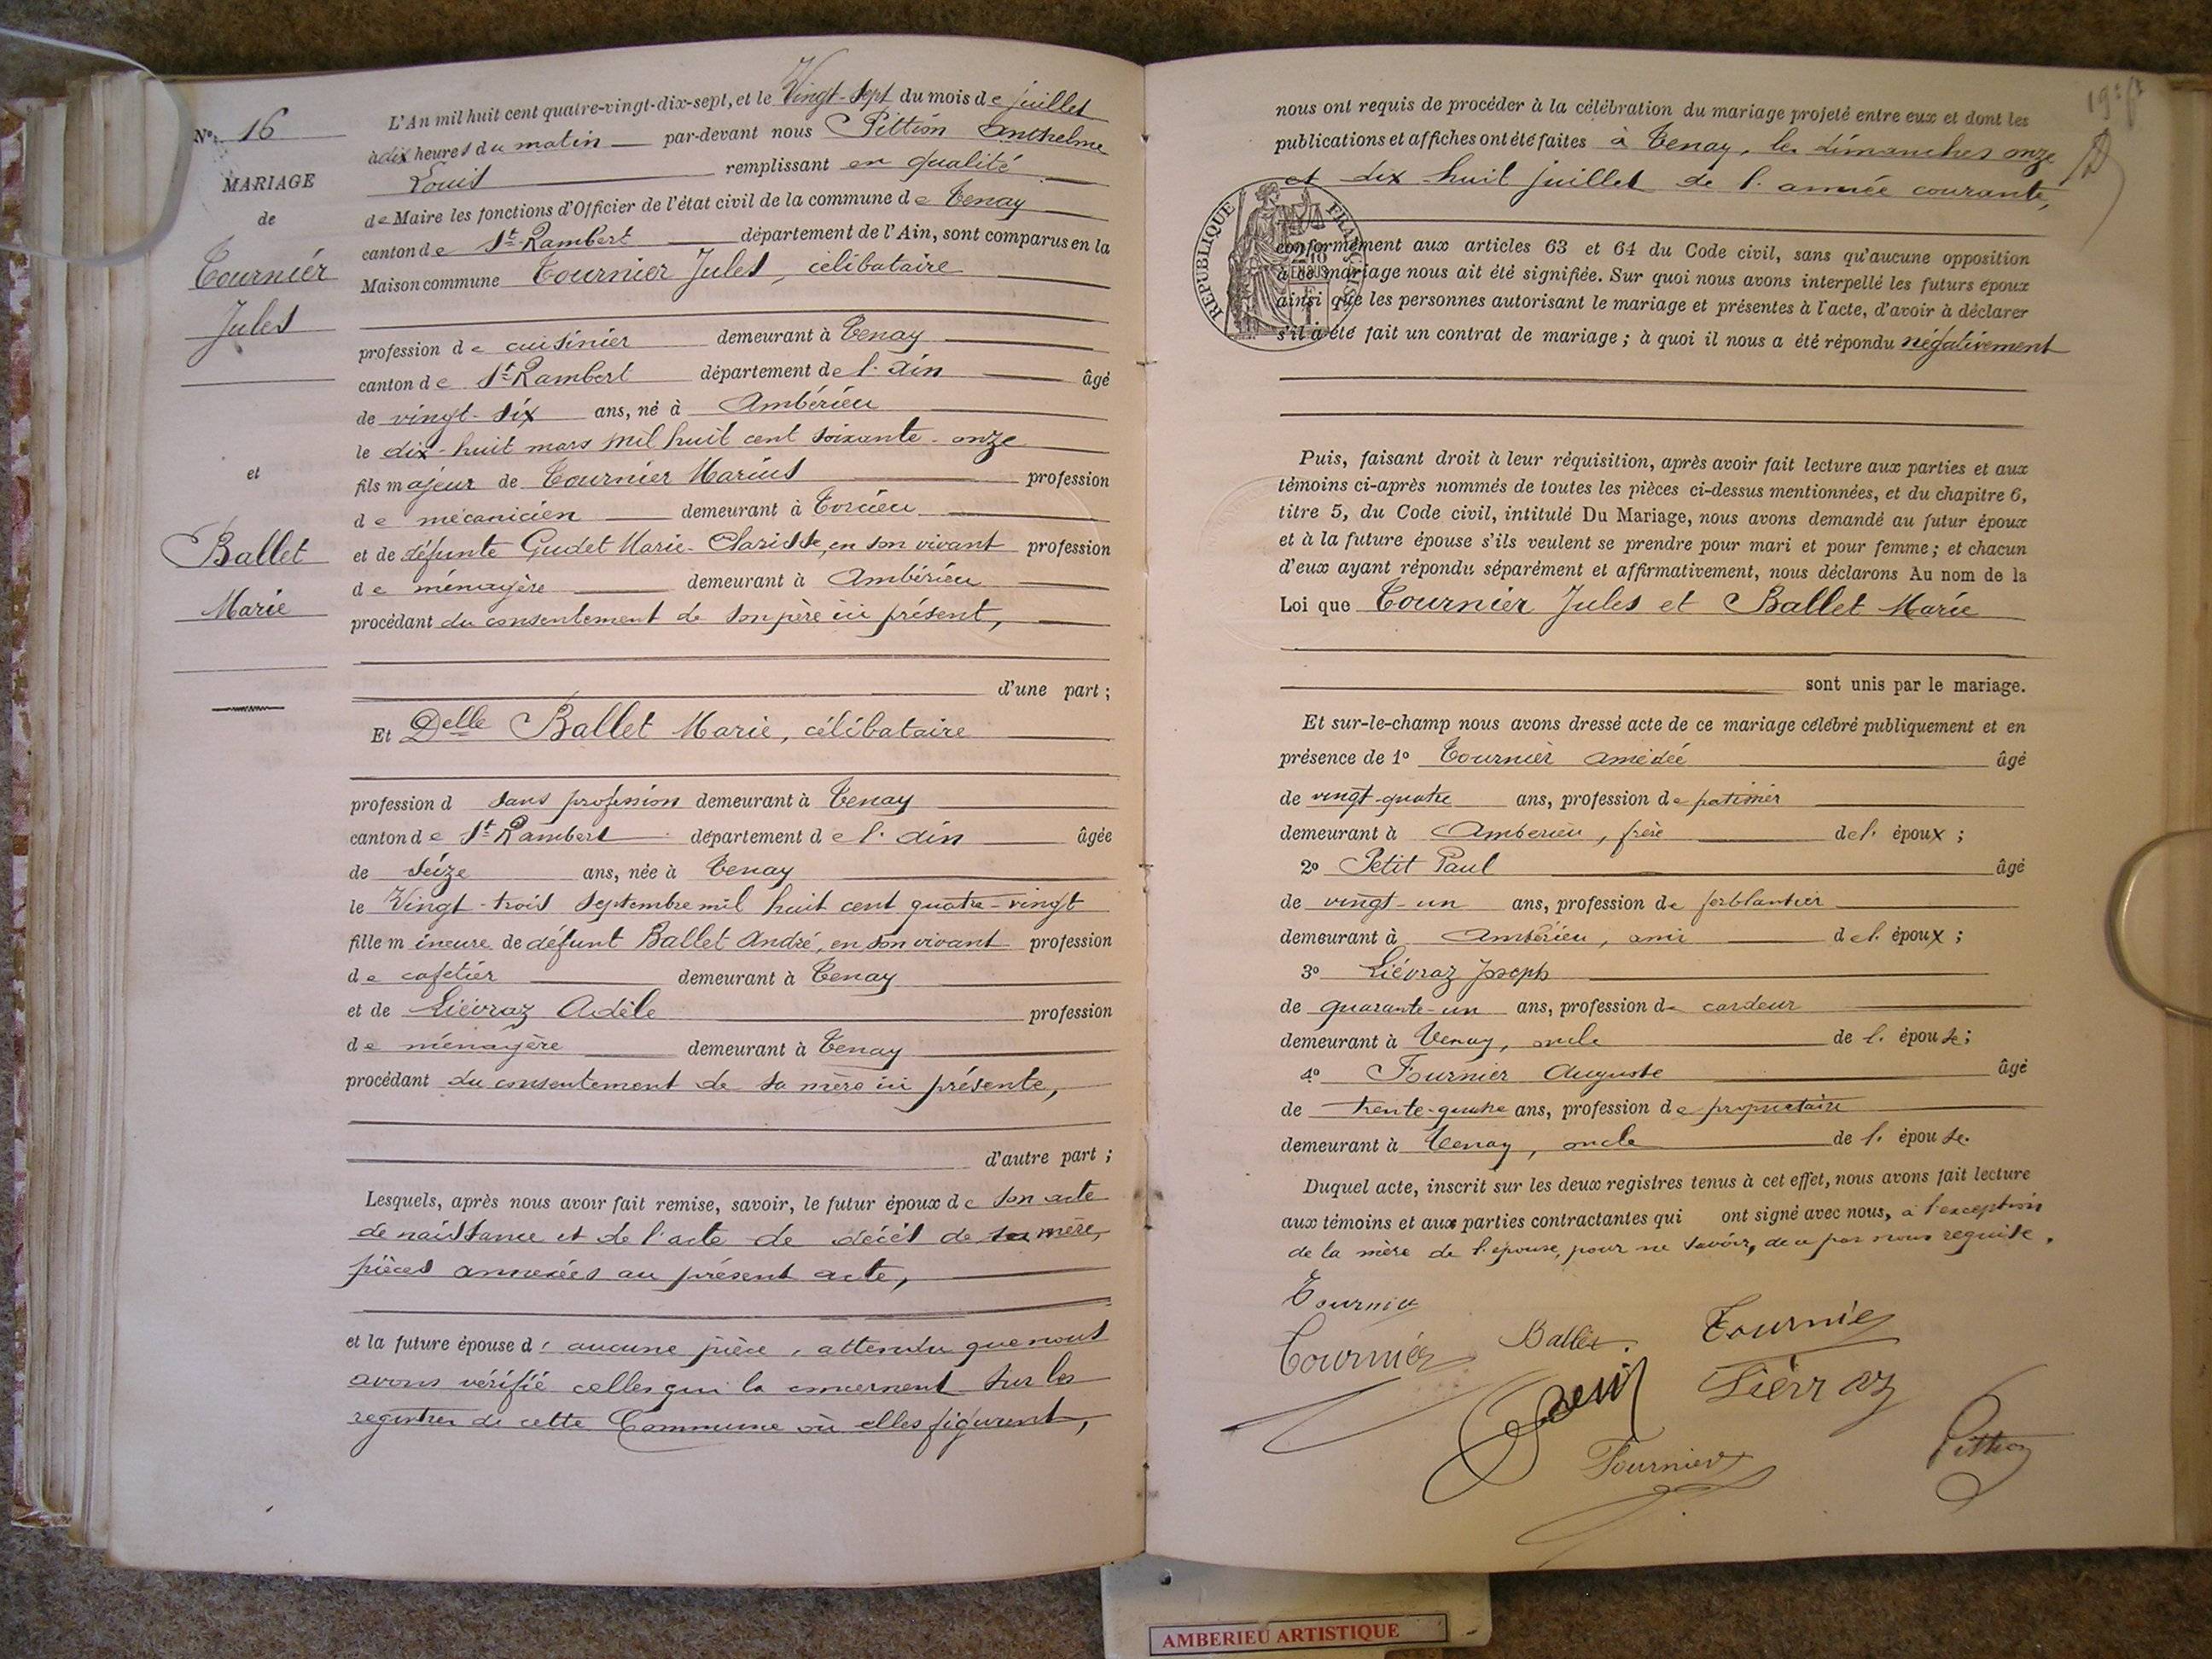 Nº 16
MARIAGE
de
Tournier
Jules
et
Ballet
Marie
L'An mil huit cent quatre-vingt-dix-sept, et le Vingt-Sept du mois de juillet
à dix heures du matin par-devant nous Pittion Anthelme
Louis remplissant en qualité
de Maire les fonctions d'Officier de l'état civil de la commune de Tenay
canton de St Rambert département de l'Ain, sont comparus en la
Maison commune Tournier Jules, célibataire
profession de cuisinier demeurant à Tenay
canton de St Rambert département de l'Ain âgé
de vingt-six ans, né à Ambérieu
le dix-huit mars mil huit cent soixante-onze
fils majeur de Tournier Marius profession
de mécanicien demeurant à Torcieu
et de défunte Gudet Marie-Clarisse, en son vivant profession
de ménagère demeurant à Ambérieu
procédant du consentement de son père ici présent,
d'une part ;
Et Delle Ballet Marie, célibataire
profession d sans profession demeurant à Tenay
canton de St Rambert département de l'Ain âgée
de Seize ans, née à Tenay
le Vingt-trois Septembre mil huit cent quatre-vingt
fille mineure de défunt Ballet André, en son vivant profession
de cafetier demeurant à Tenay
et de Liévraz Adèle profession
de ménagère demeurant à Tenay
procédant du consentement de sa mère ici présente,
d'autre part ;
Lesquels, après nous avoir fait remise, savoir, le futur époux de son acte
de naissance et de l'acte de décès de sa mère,
pièces annexées au présent acte,
et la future épouse d' aucune pièce, attendu que nous
avons vérifié celles qui la concernent sur les
registres de cette Commune où elles figurent,
nous ont requis de procéder à la célébration du mariage projeté entre eux et dont les
publications et affiches ont été faites à Tenay, les dimanches onze
et dix-huit juillet de l'année courante,
RÉPUBLIQUE FRANÇAISE
conformément aux articles 63 et 64 du Code civil, sans qu'aucune opposition
à ce mariage nous ait été signifiée. Sur quoi nous avons interpellé les futurs époux
ainsi que les personnes autorisant le mariage et présentes à l'acte, d'avoir à déclarer
s'il a été fait un contrat de mariage ; à quoi il nous a été répondu négativement
Puis, faisant droit à leur réquisition, après avoir fait lecture aux parties et aux
témoins ci-après nommés de toutes les pièces ci-dessus mentionnées, et du chapitre 6,
titre 5, du Code civil, intitulé Du Mariage, nous avons demandé au futur époux
et à la future épouse s'ils veulent se prendre pour mari et pour femme ; et chacun
d'eux ayant répondu séparément et affirmativement, nous déclarons Au nom de la
Loi que Tournier Jules et Ballet Marie
sont unis par le mariage.
Et sur-le-champ nous avons dressé acte de ce mariage célébré publiquement et en
présence de 1º Tournier Amédée âgé
de vingt-quatre ans, profession de patissier
demeurant à Ambérieu, frère de l'époux ;
2º Petit Paul âgé
de vingt-un ans, profession de ferblantier
demeurant à Ambérieu, ami de l'époux ;
3º Liévraz Joseph
de quarante-un ans, profession de cardeur
demeurant à Tenay, oncle de l'épouse ;
4º Fournier Auguste âgé
de trente-quatre ans, profession de propriétaire
demeurant à Tenay, oncle de l'épouse.
Duquel acte, inscrit sur les deux registres tenus à cet effet, nous avons fait lecture
aux témoins et aux parties contractantes qui ont signé avec nous, à l'exception
de la mère de l'épouse, pour ne savoir, de ce par nous requise.
Tournier
Tournier Ballet. Tournier
Petit Liévraz
Fournier Pittion
AMBERIEU ARTISTIQUE